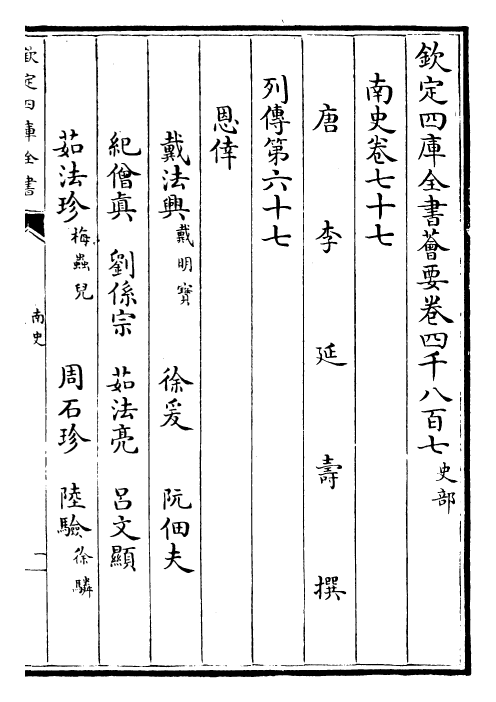 欽定四庫全書薈要卷四千八百七 史部
南史卷七十七
唐 李 延 壽 撰
列傳第六十七
恩倖
戴法興 戴明寶 徐爰 阮佃夫
紀僧眞 劉係宗 茹法亮 呂文顯
茹法珍 梅蟲兒 周石珍 陸驗 徐驎
欽定四庫全書
南史
一